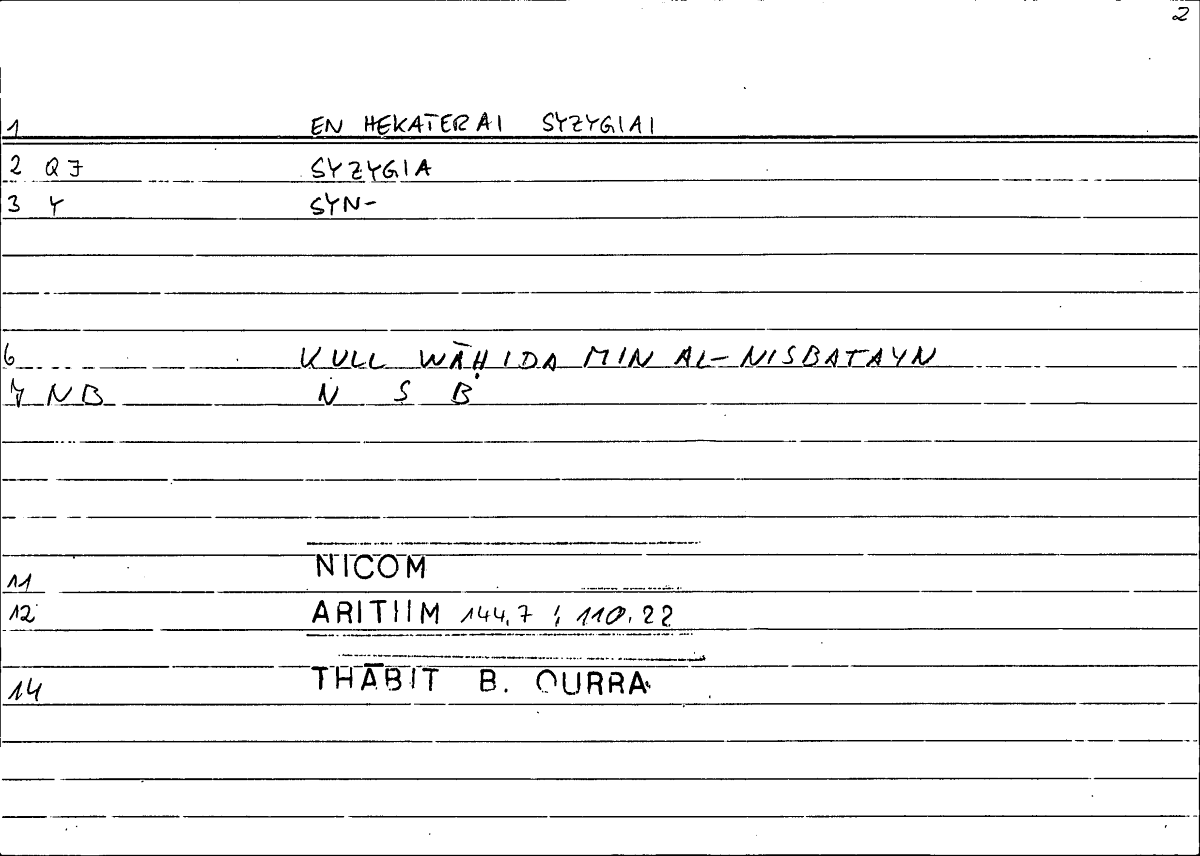 2
1 EN HEKATERAI SYZYGIAI
2 QJ SYZYGIA
3 Y SYN-
6 KULL WĀḤIDA MIN AL-NISBATAYN
7 NB N S B
11 NICOM
12 ARITIIM 144,7 ; 110.22
14 THĀBIT B. QURRA